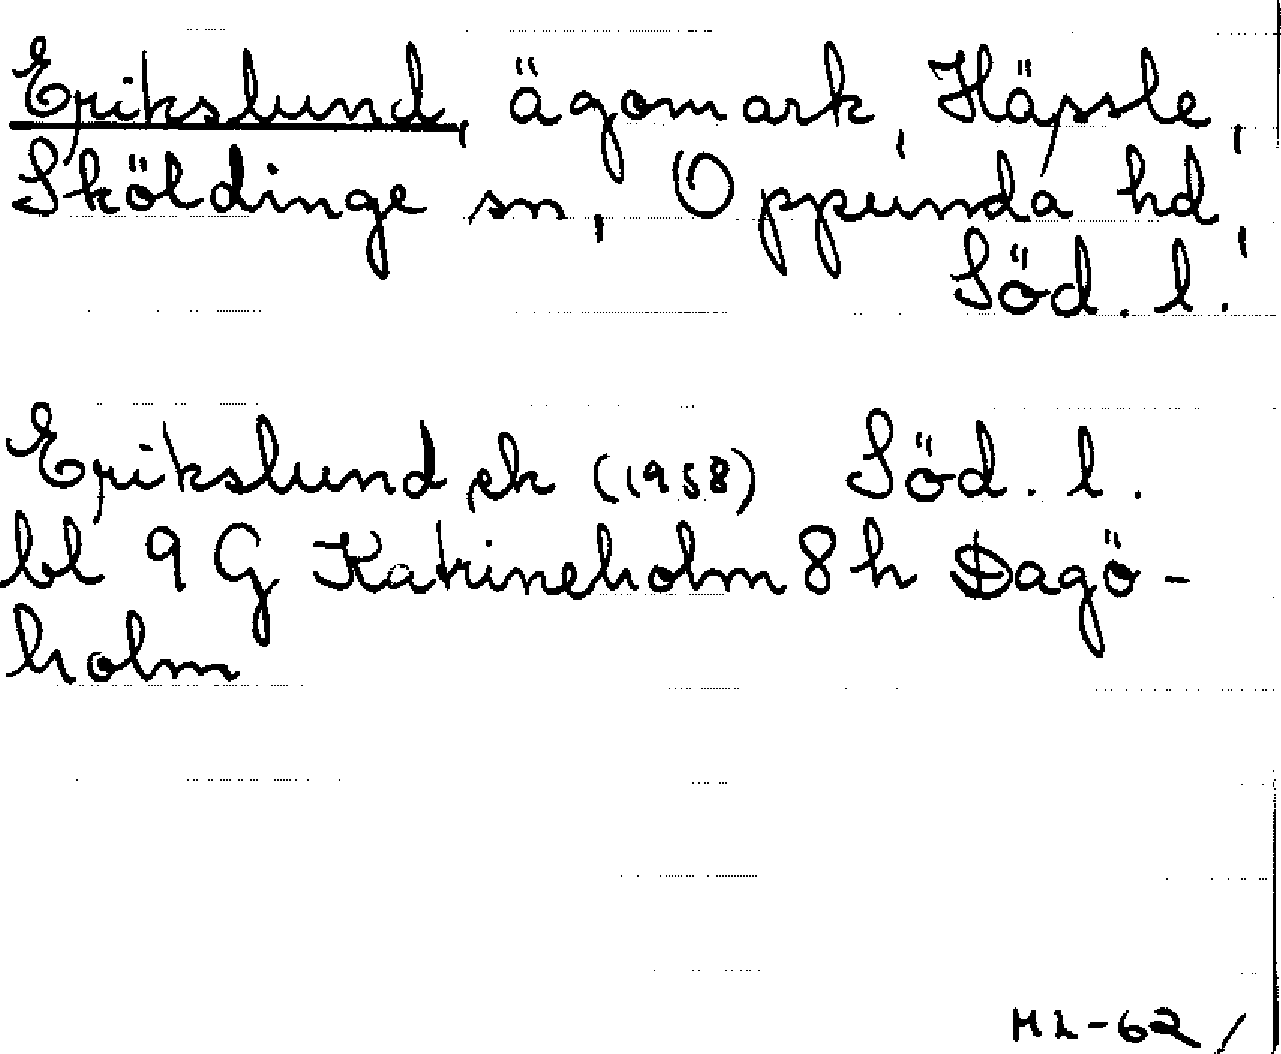 Erikslund, ägomark, Hässle,
Sköldinge sn, Oppunda hd,
Söd. l.
Erikslund ek (1958) Söd. l.
bl 9 G Katrineholm 8 h Dagö-
holm
ML-62